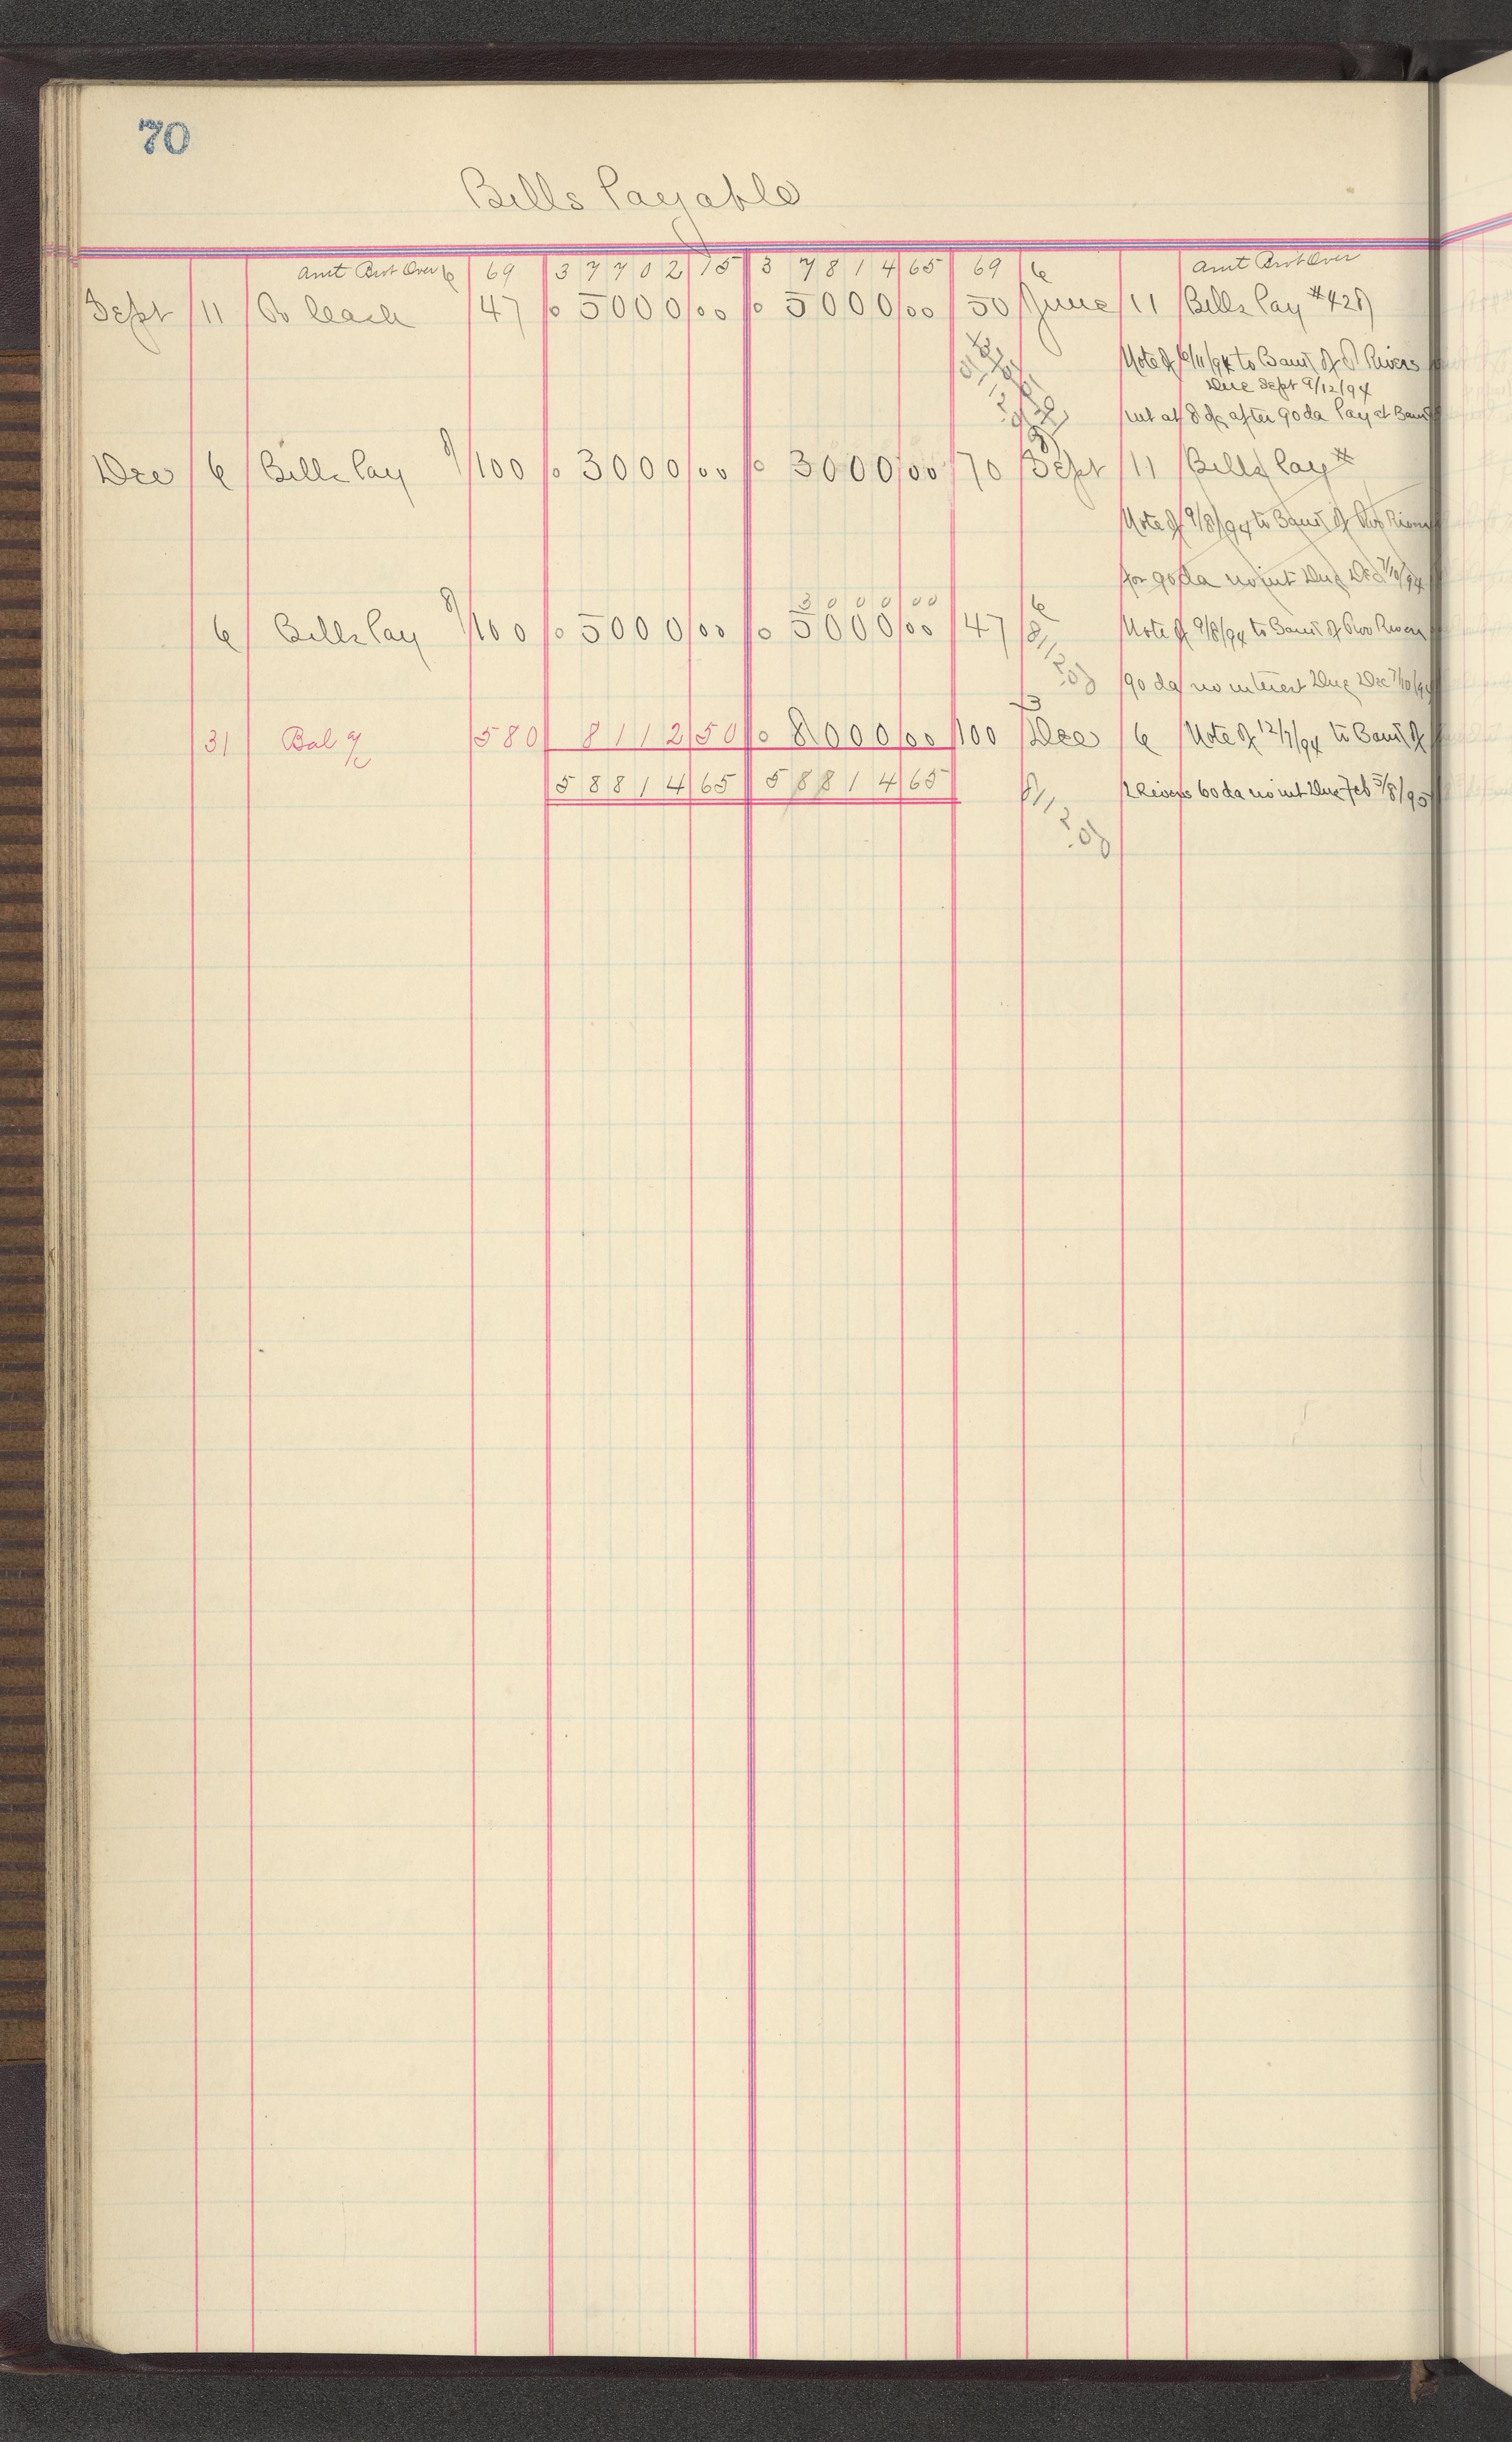 70
Bills Payable
Amt Brt Over 69 37702 15 37814 65 69 Amt Brt Over
Sept 11 By Cash 47 5000 00 5000 00 50 June 11 Bills Pay #428
Note of 6/11/94 to Bank of 2 Rivers
Due Sept 9/12/94
int at 8% after 90 da Pay at Bank
Dec 6 Bills Pay 100 3000 00 3000 00 70 Sept 11 Bills Pay #
Note of 9/8/94 to Bank of Two Rivers
for 90 da no int Due Dec 7/10/94
3000 00
6 Bills Pay 100 5000 00 5000 00 47 Note of 9/8/94 to Bank of Two Rivers
90 da no interest Due Dec 7/10/94
31 Bal a/c 580 8112 50 8000 00 100 Dec 6 Note of 12/7/94 to Bank of
2 Rivers 60 da no int Due Feb 5/8/95
58814 65 58814 65
8112.50